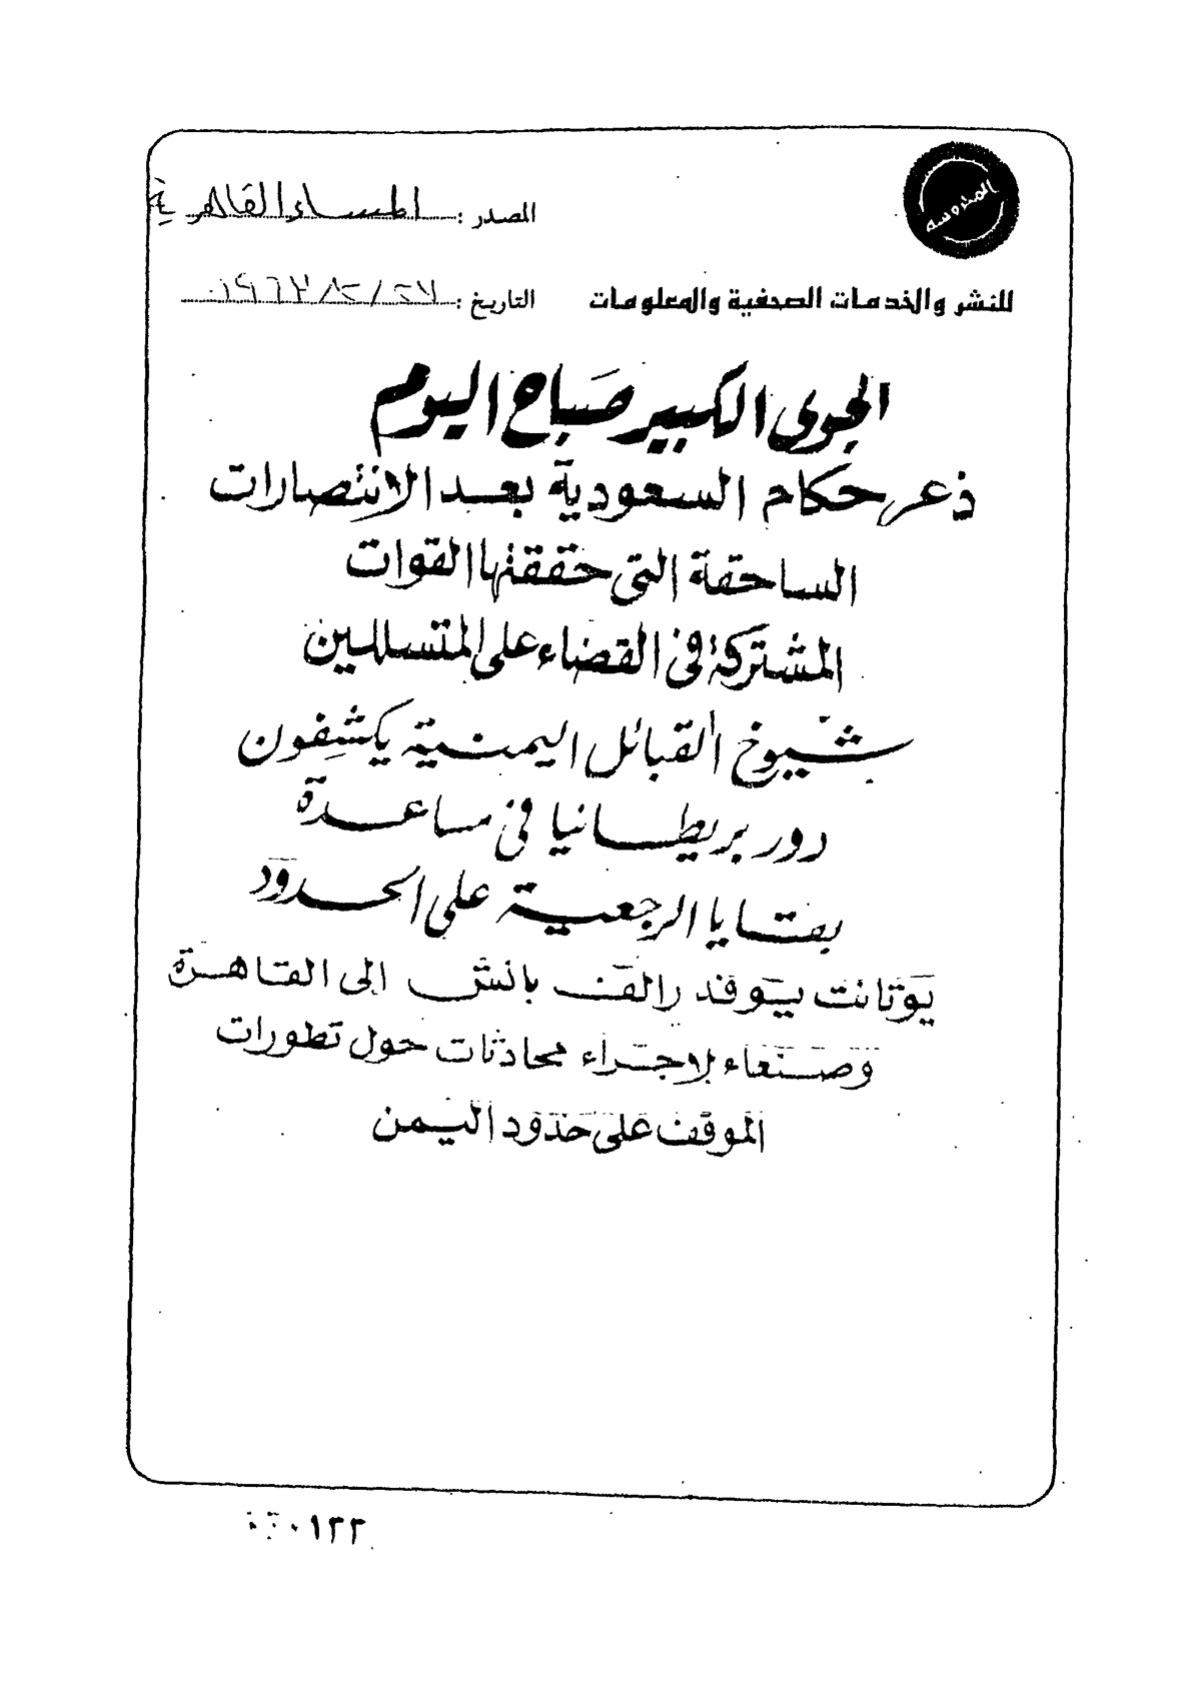 المحروسة
المصدر: المساء القاهرية
للنشر والخدمات الصحفية والمعلومات
التاريخ: ٢٧/٢/١٩٦٣
الجوى الكبير صباح اليوم
ذعر حكام السعودية بعد الانتصارات
الساحقة التى حققتها القوات
المشتركة فى القضاء على المتسللين
شيوخ القبائل اليمنية يكشفون
دور بريطانيا فى مساعدة
بقايا الرجعية على الحدود
يوثانت يوفد رالف بانش الى القاهرة
وصنعاء لإجراء محادثات حول تطورات
الموقف على حدود اليمن